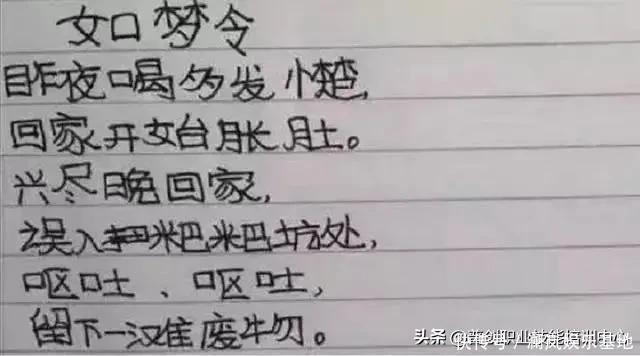 如梦令
昨夜喝多发憷，
回家开始胀肚。
兴尽晚回家，
误入粑粑坊处，
呕吐、呕吐，
留下一滩废物。
头条
快传号